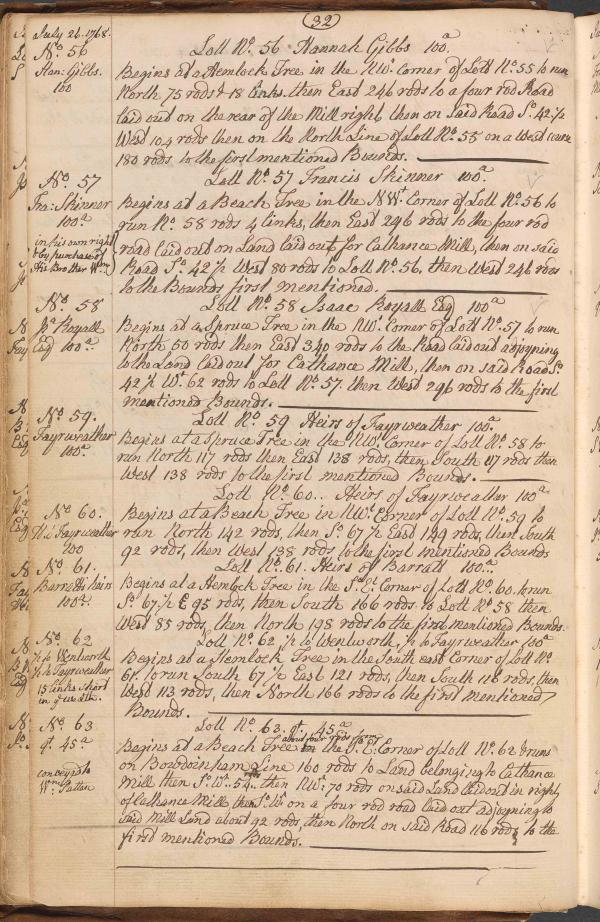 32
July 26. 1768.
No. 56
Han: Gibbs.
100
Lott No. 56 Hannah Gibbs 100.a
Begins at a Hemlock Tree in the NWt. Corner of Lott No. 55 to run
North 75 rods & 18 links. then East 246 rods to a four rod Road
laid out on the rear of the Mill right then on said Road So. 42 1/2
West 104 rods then on the North Line of Lott No. 55 on a West course
180 rods to the first mentioned Bounds.
No. 57
Fra: Skinner
100.a
in his own right
& by purchase of
His Brother Wm.
Lott No. 57 Francis Skinner 100.a
Begins at a Beach Tree in the NWt. Corner of Lott No. 56 to
run No. 58 rods 4 links, then East 246 rods to the four rod
road laid out on Land laid out for Cathance Mill, then on said
Road So. 42 1/2 West 80 rods to Lott No. 56, then West 246 rods
to the Bounds first mentioned.
No. 58
Is. Royall
Esq 100.a
Lott No. 58 Isaac Royall Esq 100.a
Begins at a Spruce Tree in the NWt. Corner of Lott No. 57 to run
North 50 rods then East 340 rods to the Road laid out adjoyning
to the Land laid out for Cathance Mill, then on said Road So.
42 1/2 Wt. 62 rods to Lott No. 57. then West 296 rods to the first
mentioned Bounds.
No. 59.
Fayrweather
100.a
Lott No. 59 Heirs of Fayrweather 100.a
Begins at a Spruce Tree in the NWt. Corner of Lott No. 58 to
run North 117 rods then East 138 rods, then South 117 rods then
West 138 rods to the first mentioned Bounds.
No. 60.
Fayrweather
100
Lott No. 60.. Heirs of Fayrweather 100.a
Begins at a Beach Tree in NWt. Corner of Lott No. 59 to
run North 142 rods, then So. 67 1/2 East 149 rods, then South
92 rods, then West 138 rods to the first mentioned Bounds
No. 61.
Barretts heirs
100.a
Lott No. 61. Heirs of Barratt 100.a
Begins at a Hemlock Tree in the So. Et. Corner of Lott No. 60. to run
So. 67 1/2 E 95 rods, then South 166 rods to Lott No. 58 then
West 85 rods, then North 198 rods to the first mentioned Bounds.
No. 62
1/2 to Wentworth
1/2 to Fayrweather
15 links short
Lott No. 62 1/2 to Wentworth, 1/2 to Fayrweather 100.a
Begins at a Hemlock Tree in the South east Corner of Lott No.
61. to run South 67 1/2 East 121 rods, then South 118 rods, then
West 113 rods, then North 166 rods to the first mentioned
Bounds.
No. 63
qt. 45.a
convey'd to
Wm. Patten
Lott No. 63. qt. 45.a
about four rods from
Begins at a Beach Tree in the So. Et. Corner of Lott No. 62 & runs
on Bowdoinham Line 160 rods to Land belonging to Cathance
Mill then So. Wt. 54 rods then NWt. 70 rods on said Land laid out in right
of Cathance Mill, then So. Wt. on a four rod road laid out adjoyning to
said Mill Land about 92 rods, then North on said Road 116 rods to the
first mentioned Bounds.